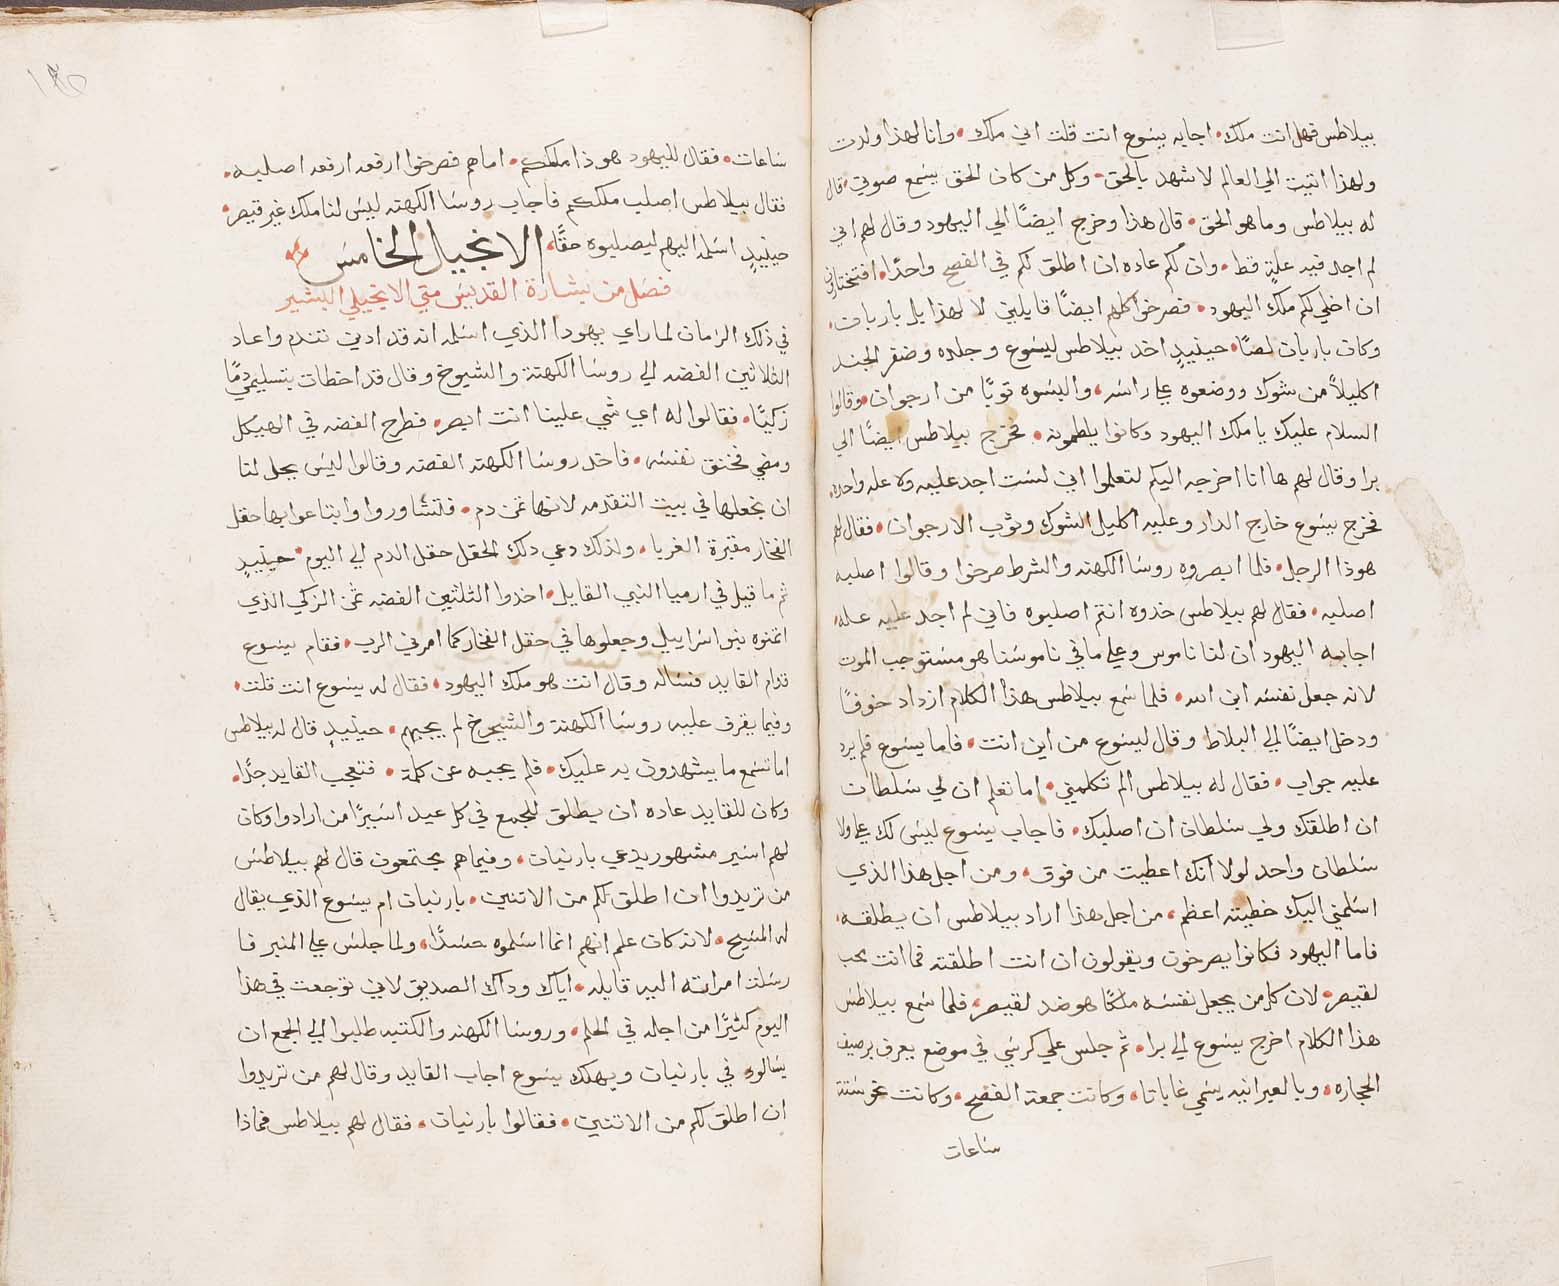 بيلاطس فهل انت ملك. اجابه يسوع انت قلت اني ملك. وانا لهذا ولدت
ولهذا اتيت الي العالم لاشهد بالحق. وكل من كان الحق يسمع صوتي. قال
له بيلاطس وما هو الحق. قال هذا وخرج ايضًا الي اليهود وقال لهم اني
لم اجد فيه علةٍ قط. وان لكم عاده ان اطلق لكم في الفصح واحدًا. افتختارون
ان اخلي لكم ملك اليهود. فصرخوا كلهم ايضًا قايلين لا لهذا بل باربان.
وكان باربان لصًا. حينيدٍ اخد بيلاطس ليسوع وجلده وضفر الجند
اكليلاً من شوك ووضعوه علي راسه، والبسوه توبًا من ارجوان. وقالوا
السلام عليك يا ملك اليهود وكانوا يلطمونه. فخرج بيلاطس ايضًا الي
برا وقال لهم ها انا اخرجه اليكم لتعلموا اني لست اجد عليه ولا عله واحده.
فخرج يسوع خارج الدار وعليه اكليل الشوك وثوب الارجوان. فقال لهم
هودا الرجل. فلما ابصروه روسا الكهنه والشرط صرخوا وقالوا اصلبه
اصلبه. فقال لهم بيلاطس خدوه انتم اصلبوه فاني لم اجد عليه عله.
اجابه اليهود ان لنا ناموس وعلي ما في ناموسنا هو مستوجب الموت
لانه جعل نفسه ابن الله. فلما سمع بيلاطس هذا الكلام ازداد خوفًا
ودخل ايضًا الي البلاط وقال ليسوع من اين انت. فاما يسوع فلم يرد
عليه جواب. فقال له بيلاطس الم تكلمني. اما تعلم ان لي سلطان
ان اطلقك ولي سلطان ان اصلبك. فاجاب يسوع ليس لك علي ولا
سلطان واحد لولا انك اعطيت من فوق. ومن اجل هذا الذي
اسلمني اليك خطيته اعظم. من اجل هذا اراد بيلاطس ان يطلقه.
فاما اليهود فكانوا يصرخون ويقولون ان انت اطلقته فما انت محب
لقيصر. لان كل من يجعل نفسه ملكًا هو ضد لقيصر. فلما سمع بيلاطس
هذا الكلام اخرج يسوع الي برا. ثم جلس علي كرسي في موضع يعرف برصيف
الحجاره. وبالعبرانيه يسمي غاباتا. وكانت جمعة الفصح. وكانت نحو ستة
ساعات
ساعات. فقال لليهود هوذا ملككم. اما هم فصرخوا ارفعه ارفعه اصلبه.
فقال بيلاطس اصلب ملككم فاجاب روسا الكهنه ليس لنا ملك غير قيصر.
حينيدٍ اسلمه اليهم ليصلبوه حقًا، الانجيل الخامس
فصل من بشارة القديس متي الانجيلي البشير
في ذلك الزمان لما راي يهودا الذي اسلمه انه قد ادين تندم واعاد
الثلاثين الفضه الي روسا الكهنة والشيوخ وقال قد اخطات بتسليمي دمًا
زكيًا. فقالوا له اي شي علينا انت ابصر. فطرح الفضه في الهيكل
ومضي فخنق نفسه. فاخد روسا الكهنه الفضه وقالوا ليس يحل لنا
ان نجعلها في بيت التقدمه لانها ثمن دم. فتشاوروا وابتاعوا بها حقل
الفخار مقبرة الغربا. ولذلك دعي دلك الحقل حقل الدم الي اليوم. حينيدٍ
تم ما قيل في ارميا النبي القايل. اخدوا الثلثين الفضه ثمن الزكي الذي
اثمنوه بنو اسراييل وجعلوها في حقل الفخار كما امرني الرب. فقام يسوع
قدام القايد فساله وقال انت هو ملك اليهود. فقال له يسوع انت قلت.
وفيما يقرف عليه روسا الكهنة والشيوخ لم يجبهم. حينيدٍ قال له بيلاطس
اما تسمع ما يشهدون به عليك. فلم يجبه عن كلمة. فتعجب القايد جدًا.
وكان للقايد عاده ان يطلق للجمع في كل عيد اسيرًا من ارادوا وكان
لهم اسير مشهور يدعي بارنبان. وفيما هم مجتمعون قال لهم بيلاطس
من تريدوا ان اطلق لكم من الاتنين. بارنبان ام يسوع الذي يقال
له المسيح. لانه كان علم انهم انما اسلموه حسدًا. ولما جلس علي المنبر فا
رسلت امراته اليه قايله. اياك وداك الصديق لاني توجعت في هذا
اليوم كثيرًا من اجله في الحلم. وروسا الكهنه والكتبه طلبوا الي الجمع ان
يسالوه في بارنبان ويهلك يسوع اجاب القايد وقال لهم من تريدوا
ان اطلق لكم من الاتنين. فقالوا بارنبان. فقال لهم بيلاطس فماذا